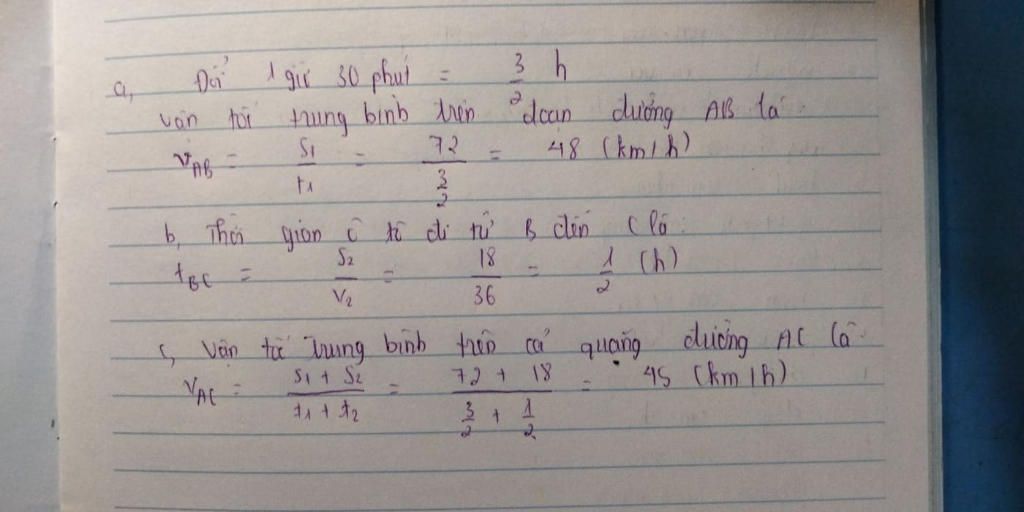 a, Đổi 1 giờ 30 phút = 3/2 h
vận tốc trung bình trên đoạn đường AB là:
v_AB = s1/t1 = 72/(3/2) = 48 (km/h)
b, Thời gian ô tô đi từ B đến C là:
t_BC = s2/v2 = 18/36 = 1/2 (h)
c, vận tốc trung bình trên cả quãng đường AC là:
v_AC = (s1 + s2)/(t1 + t2) = (72 + 18)/(3/2 + 1/2) = 45 (km/h)